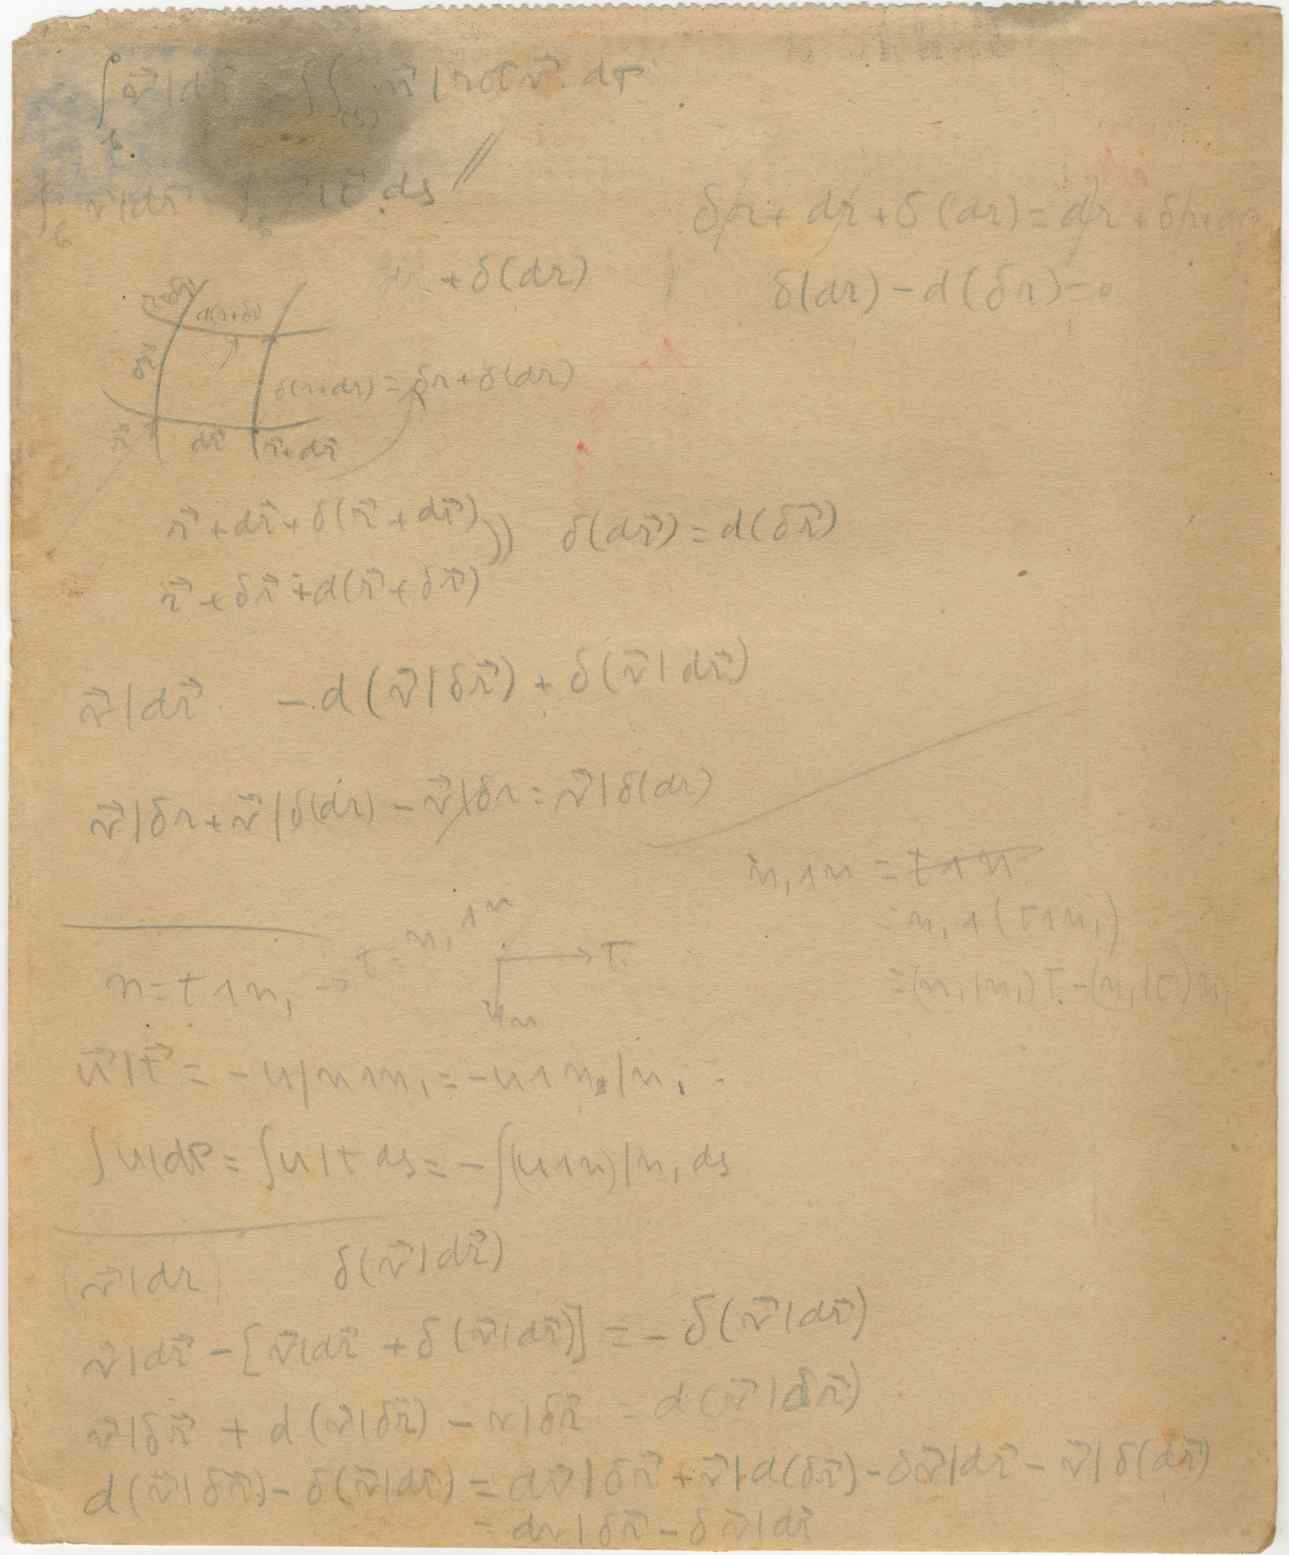 ∫ v⃗|dr⃗ = ∫∫ n⃗ | rot v⃗ . dσ
∫ v⃗|dr⃗ ∫ |t⃗ . ds //
δr + dr + δ(dr) = dr + δr + d
+ δ(dr)
δ(dr) - d(δr) = 0
r+δr
d(r+δr)
δr⃗
δ(r+dr) = δr + δ(dr)
r⃗ dr⃗ r⃗+dr⃗
r⃗ + dr⃗ + δ(r⃗ + dr⃗) )) δ(dr⃗) = d(δr⃗)
r⃗ + δr⃗ + d(r⃗ + δr⃗)
v⃗|dr⃗ - d(v⃗|δr⃗) + δ(v⃗|dr⃗)
v⃗|δr + v⃗|δ(dr) - v⃗|δr = v⃗|δ(dr)
n₁∧n = t∧n
= n₁∧(t∧n₁)
= (n₁|n₁)t - (n₁|t)n₁
n = t∧n₁ → t = n₁∧n
t
n
u⃗|t⃗ = -u|n∧n₁ = -u∧n|n₁
∫u|dr = ∫u|t ds = -∫(u∧n)|n₁ ds
v⃗|dr δ(v⃗|dr⃗)
v⃗|dr⃗ - [v⃗|dr⃗ + δ(v⃗|dr⃗)] = - δ(v⃗|dr⃗)
v⃗|δr⃗ + d(v⃗|δr⃗) - v|δr⃗ = d(v⃗|δr⃗)
d(v⃗|δr⃗) - δ(v⃗|dr⃗) = dv⃗|δr⃗ + v⃗|d(δr⃗) - δv⃗|dr⃗ - v⃗|δ(dr⃗)
= dv|δr⃗ - δv⃗|dr⃗